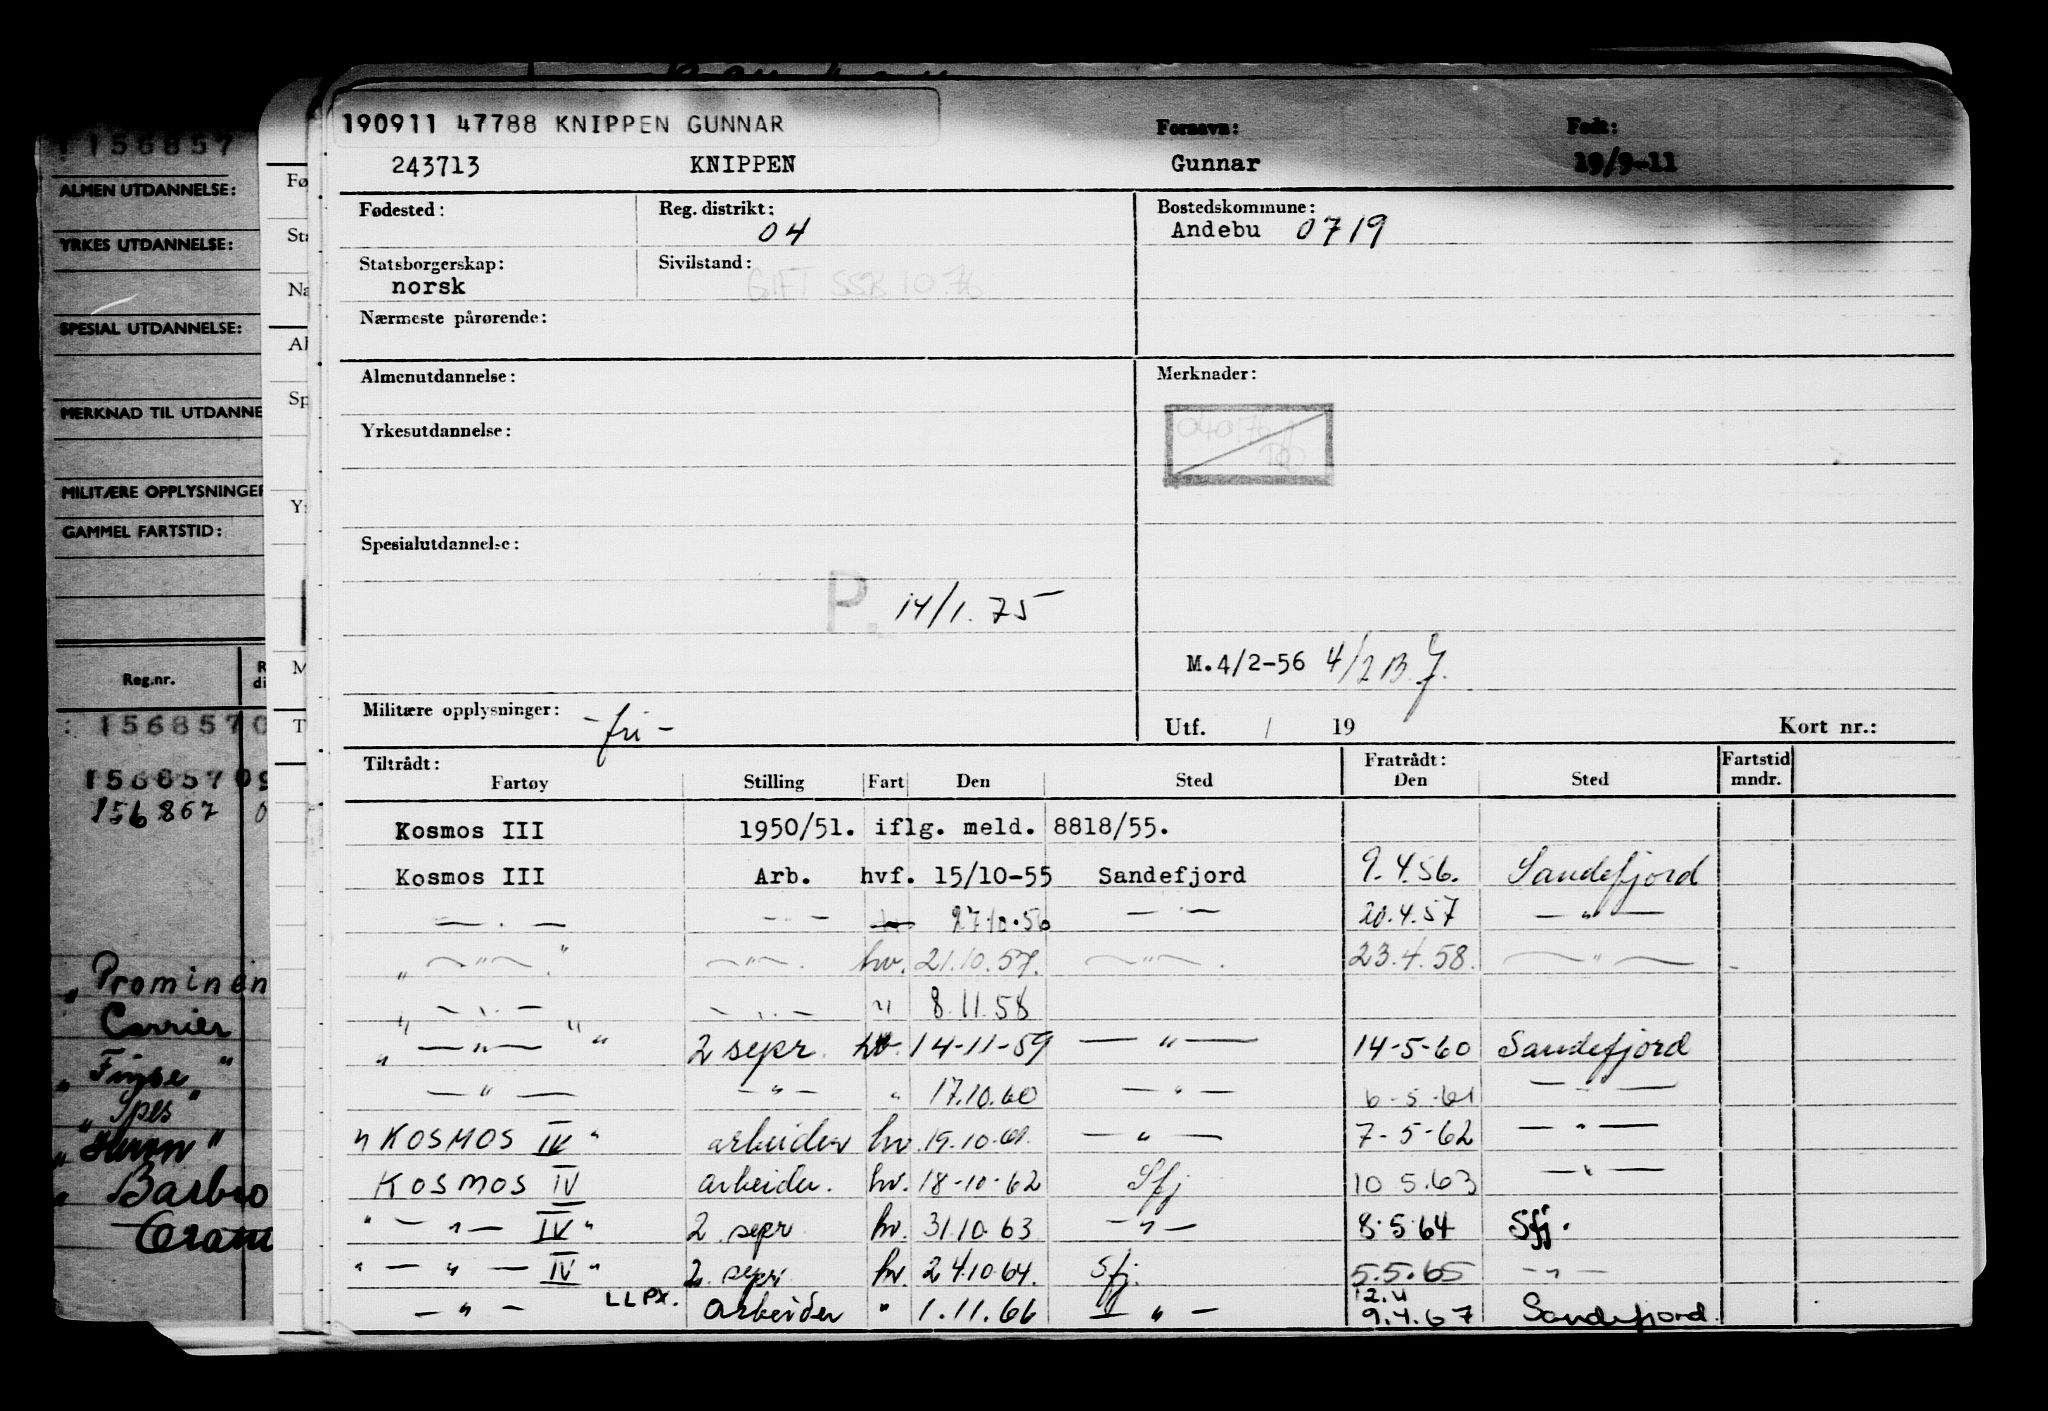 190911 47788 KNIPPEN GUNNAR
Fornavn: Født:
243713 KNIPPEN Gunnar 19/9-11
Fødested: Reg. distrikt: 04 Bostedskommune: Andebu 0719
Statsborgerskap: norsk Sivilstand: GIFT SSB 10.76
Nærmeste pårørende:
Almenutdannelse: Merknader:
Yrkesutdannelse:
Spesialutdannelse:
P. 14/1.75
M.4/2-56 4/2 B.J.
Militære opplysninger: -fri- Utf. / 19 Kort nr.:
Tiltrådt: Fratrådt: Fartstid
Fartøy Stilling Fart Den Sted Den Sted mndr.
Kosmos III 1950/51. iflg. meld. 8818/55.
Kosmos III Arb. hvf. 15/10-55 Sandefjord 9.4.56. Sandefjord
— . — — . — 27.10.56 — . — 20.4.57 — " —
" — " — " — " — hv. 21.10.57. — " — 23.4.58. — " —
" — . — " — . — " 8.11.58
" — " — " 2 sepr. hv. 14-11-59 — " — 14-5-60 Sandefjord
— " — — " — " 17.10.60 — " — 6-5-61 — " —
" KOSMOS IV " arbeider hv. 19.10.61. — " — 7-5-62 — " —
KOSMOS IV arbeider. hv. 18-10-62 Sfj 10 5.63 — " —
" — " — IV " 2 sepr hv. 31.10.63 — " — 8.5.64 Sfj.
" — " — IV " 2. sepr hv. 24.10.64. Sfj. 5.5.65 — " —
— " — LLPX. arbeider " 1.11.66 — " — 12.4
9.4.67 Sandefjord.
156857
ALMEN UTDANNELSE:
YRKES UTDANNELSE:
SPESIAL UTDANNELSE:
MERKNAD TIL UTDANNE
MILITÆRE OPPLYSNINGER
GAMMEL FARTSTID:
Reg.nr. R
di
: 1568570
15685709
156867 0
" Prominen
Carrier
" Finse "
" Spes "
" Heron "
" Barbro
Cram
Fø
Sta
Na
Al
Sp
Yr
M
T